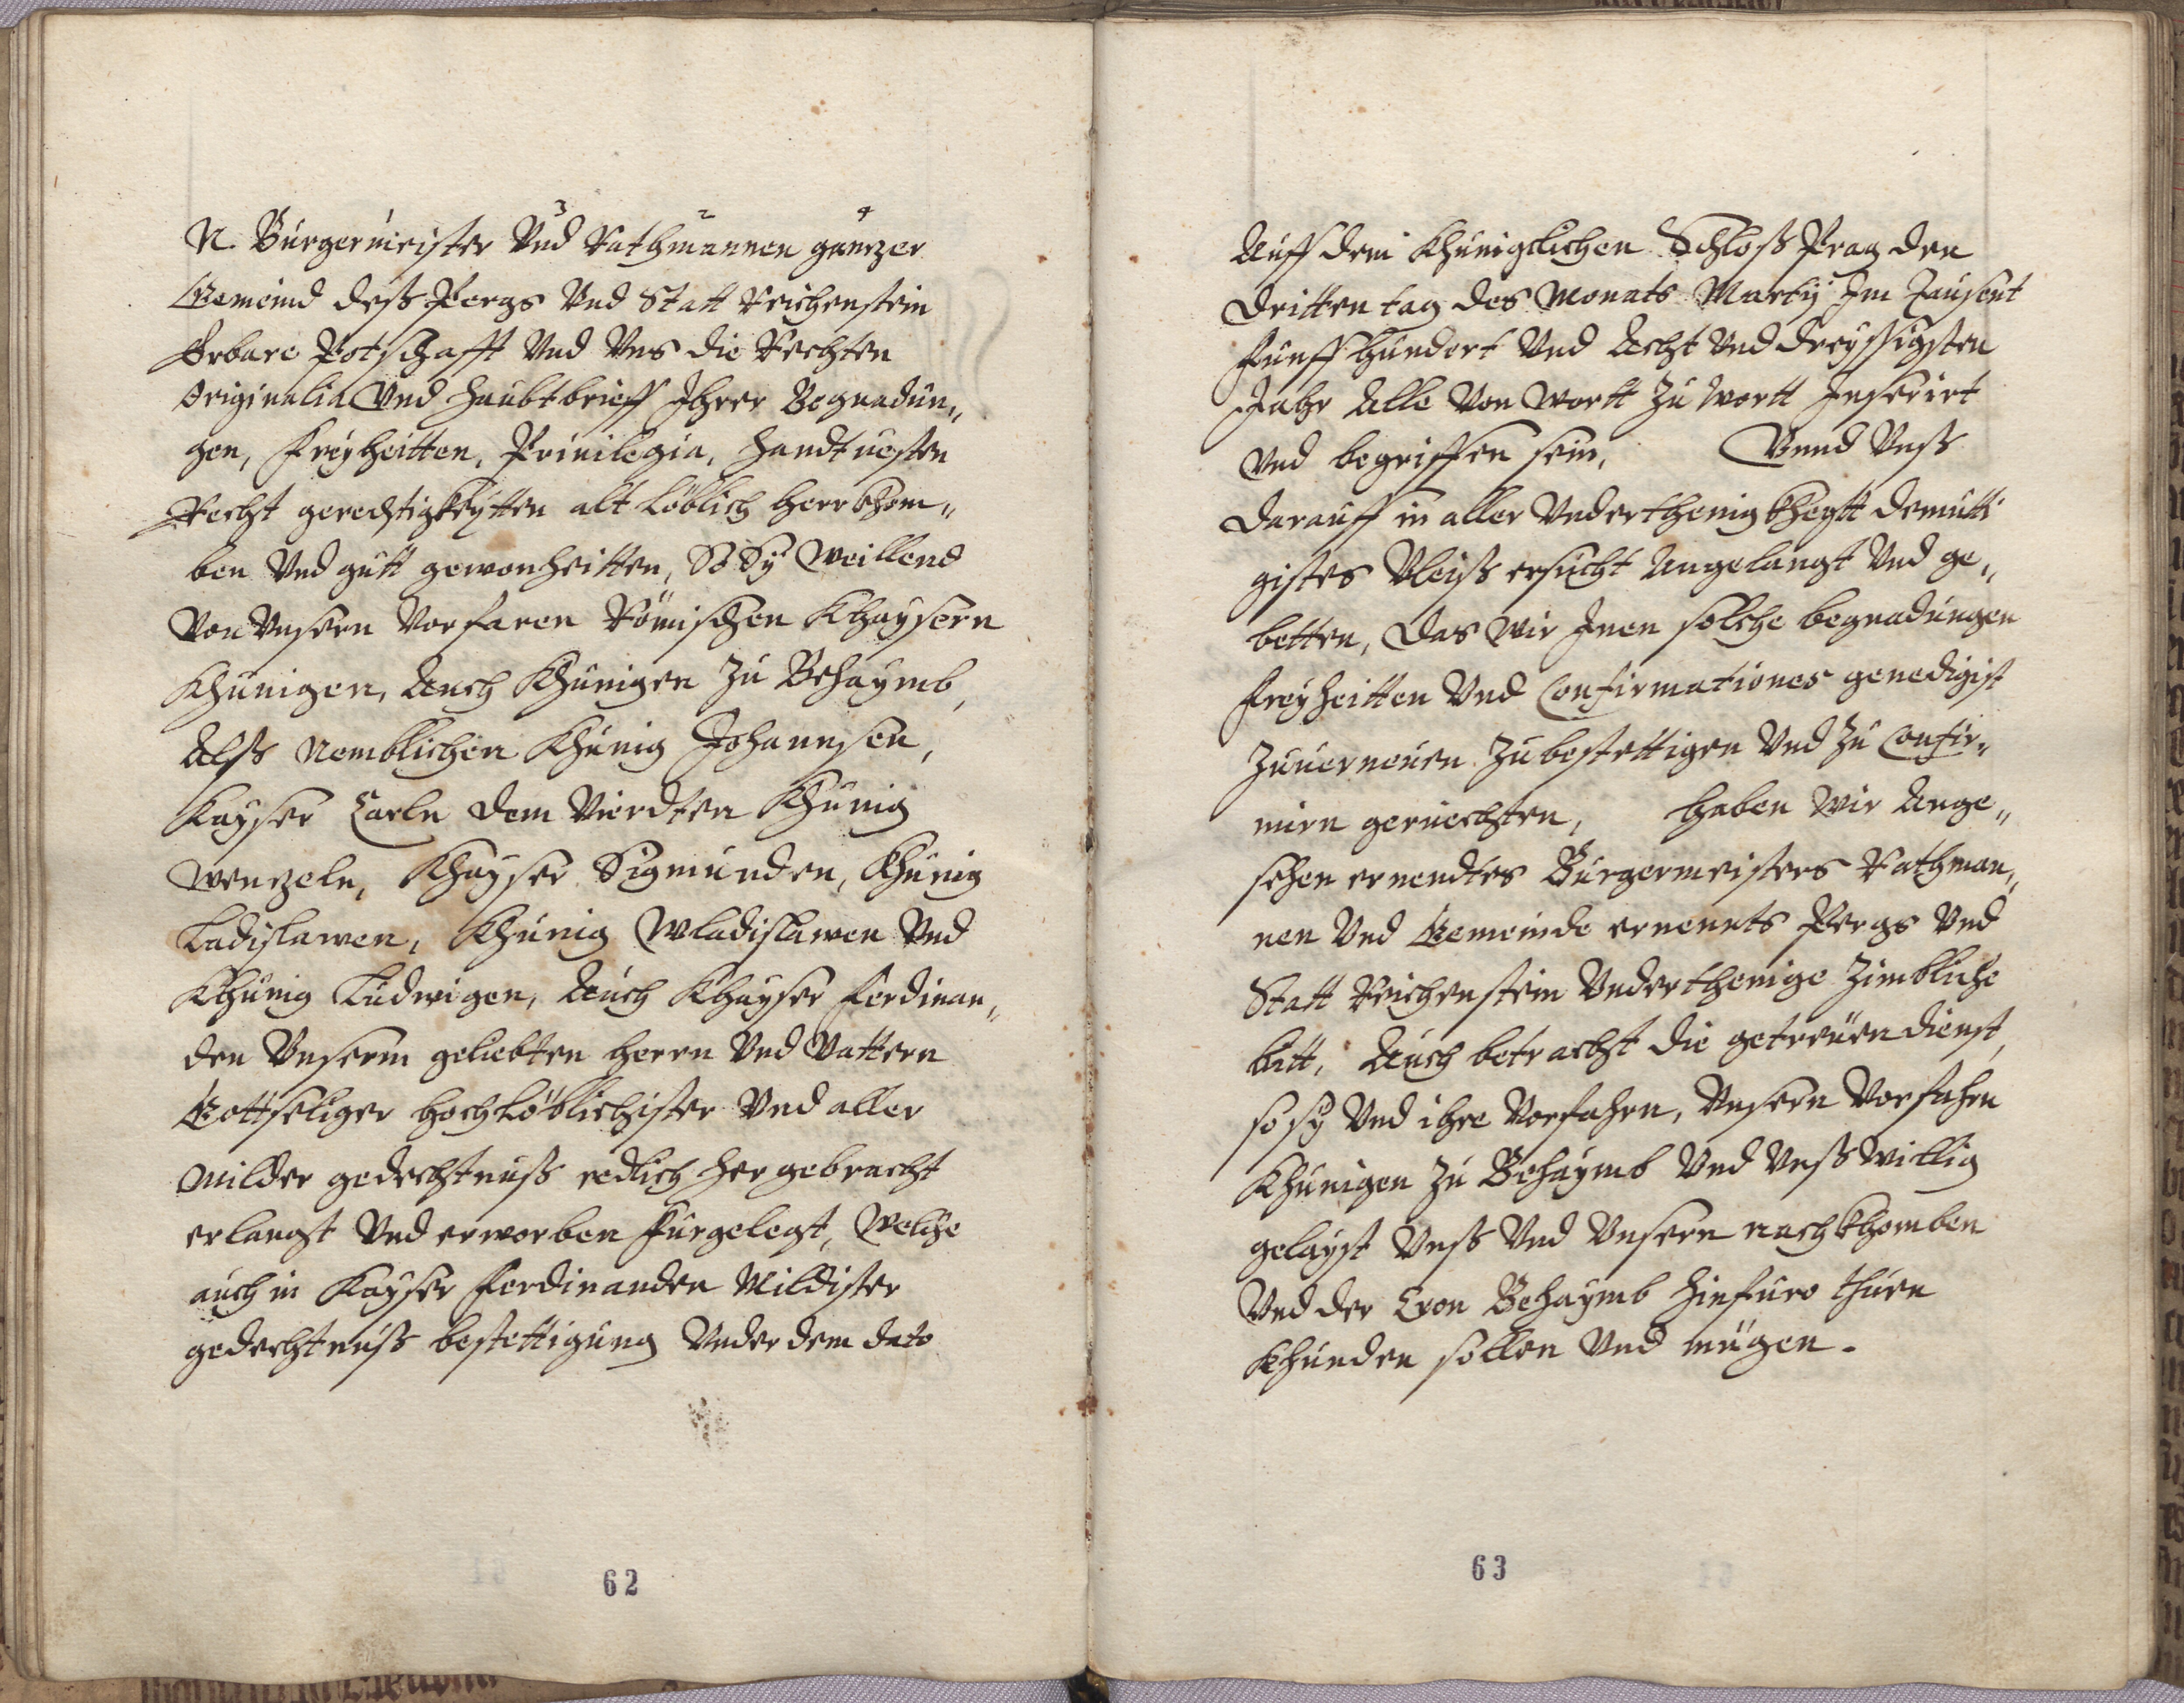 N. Burgermeister Vnd Rathmannen gantzer
Gemeind deß Pergs Vnd Statt Reichenstein
Erbare Potschafft Vnd Vns die Rechten
Originalia Vnd Haubtbrieff Ihrer Begnadun„
gen, Freyheitten, Priuilegia, Handtuesten
Recht gerechtigkeytten alt löblich herrkhom„
ben Vnd gutt gewonheitten, So Sy weillend
Von Vnsern Vorfaren Römischen Khaysern
Khunigen, Auch Khunigen zu Behaymb,
Alß Nemblichen Khunig Johannsen,
Kayser Carln dem Vierdten Khunig
Wenzeln, Khayser Sigmunden, Khunig
Ladislawen, Khunig Wladislawen Vnd
Khunig Ludwigen, Auch Khayser Ferdinan„
den Vnserm geliebten herrn Vnd Vattern
Gottseliger hochlöblichister Vnd aller
Milder gedechtnuß redlich hergebracht
erlangt Vnd erworben Furgelegt, Welche
auch in Kayser Ferdinanden Mildister
gedechtnuß bestettigung Vnder dem dato
62
Auff dem Khunigclichen Schloß Prag den
dritten tag des Monats Martij Im Tausent
Funffhundert Vnd Acht Vnd dreyssigsten
Jahr Alle Von Wortt zu Wortt Inserirt
Vnd begriffen sein, Vnnd Vnß
darauff in aller Vnderthenigkheytt demutti
gistes Vleiß ersucht Angelangt Vnd ge„
betten, Das Wir Inen solche begnadungen
Freyheitten Vnd Confirmationes genedigist
Zuuerneuen Zubestettigen Vnd Zu Confir„
mirn geruechten, haben Wir Ange„
sehen ernendtes Burgermeisters Rathman„
nen Vnd Gemeinde ernennts Pergs Vnd
Statt Reichenstein Vnderthenige Zimbliche
bitt, Auch betracht die getreuen dienst,
so sy Vnd ihre Vorfahrn, Vnsern Vorfahrn
Khunigen Zu Behaymb Vnd Vnß Willig
gelayst Vnß Vnd Vnsern nachkhomben
Vnd der Cron Behaymb hinfuro thuen
Khunden sollen Vnd mügen.
63